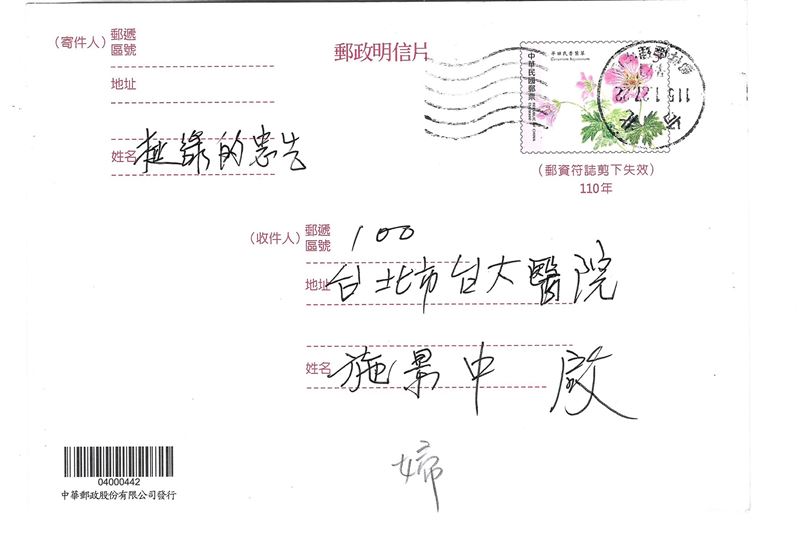 (寄件人) 郵遞區號
地址
姓名 挺綠的忠告
郵政明信片
中華民國郵票
(郵資符誌剪下失效)
110年
115.1.27.22
(收件人) 郵遞區號 100
地址 台北市台大醫院
姓名 施景中 啟
婦
04000442
中華郵政股份有限公司發行